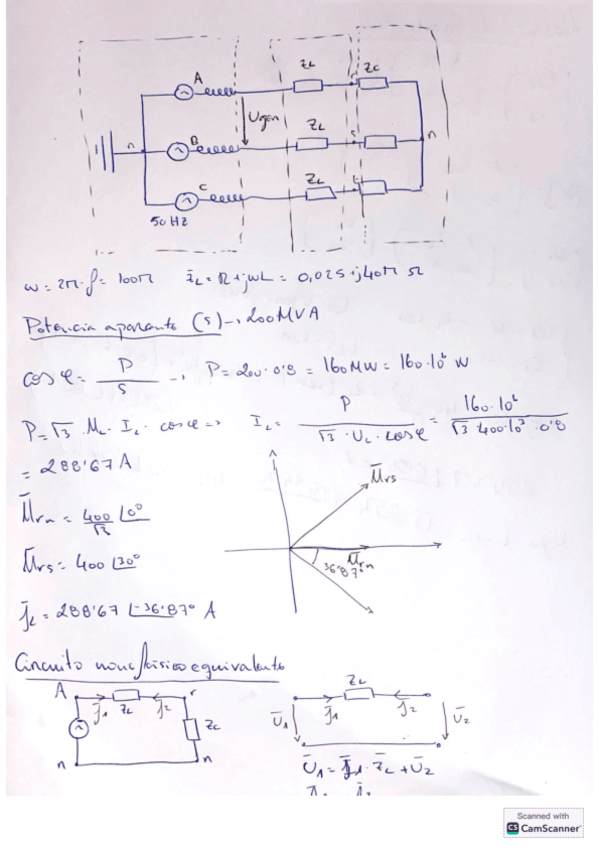 A
ZL
Zc
Ugen
n
B
ZL
s
n
C
ZL
t
50 Hz
ω = 2π·f = 100π   Z̄L = R+jωL = 0,025+j40π Ω
Potencia aparente (S) → 200MVA
cos φ = P/S → P = 200·0'8 = 160MW = 160·10⁶ W
P = √3·UL·IL·cos φ => IL = P/(√3·UL·cos φ) = 160·10⁶/(√3·400·10³·0'8)
= 288'67 A
Ūrs
Ūrn = 400/√3 ∠0°
Ūrn
36'87°
Ūrs = 400 ∠30°
ĪL = 288'67 ∠-36'87° A
Circuito monofásico equivalente
A
r
ZL
I1
ZL
I2
Zc
n
n
Ū1
I1
I2
Ū2
Ū1 = Ī1·Z̄L + Ū2
Scanned with
CS CamScanner